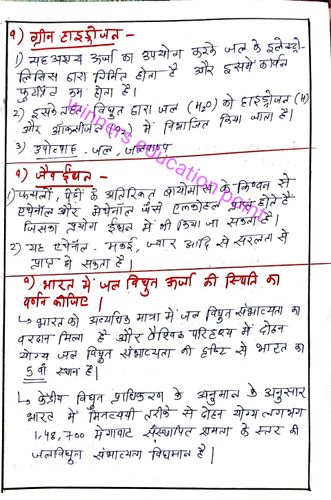 १) ग्रीन हाइड्रोजन -
1) यह अक्षय ऊर्जा का उपयोग करके जल के इलेक्ट्रो-
लिसिस द्वारा निर्मित होता है और इसमें कार्बन
फुटप्रिंट कम होता है।
2) इसके तहत विद्युत द्वारा जल (H₂O) को हाइड्रोजन (H)
और ऑक्सीजन (O2) में विभाजित किया जाता है।
3) उपोत्पाद - जल, जलवाष्प
winners education point
१) जैव ईंधन -
1) फसलों, पेड़ों के अतिरिक्त बायोमास के किण्वन से
एथेनॉल और मेथेनॉल जैसे एल्कोहल प्राप्त होते हैं
जिसका प्रयोग ईंधन में भी किया जा सकता है।
2) यह एथेनॉल - मकई, ज्वार आदि से सरलता से
प्राप्त हो सकता है।
१) भारत में जल विद्युत ऊर्जा की स्थिति का
वर्णन कीजिए।
↳ भारत को अत्यधिक मात्रा में जल विद्युत संभाव्यता का
वरदान मिला है और वैश्विक परिदृश्य में दोहन
योग्य जल विद्युत संभाव्यता की दृष्टि से भारत का
5 वाँ स्थान है।
↳ केंद्रीय विद्युत प्राधिकरण के अनुमान के अनुसार
भारत में मितव्ययी तरीके से दोहन योग्य लगभग
1,48,700 मेगावाट संस्थापित क्षमता के स्तर की
जलविद्युत संभाव्यता विद्यमान है।